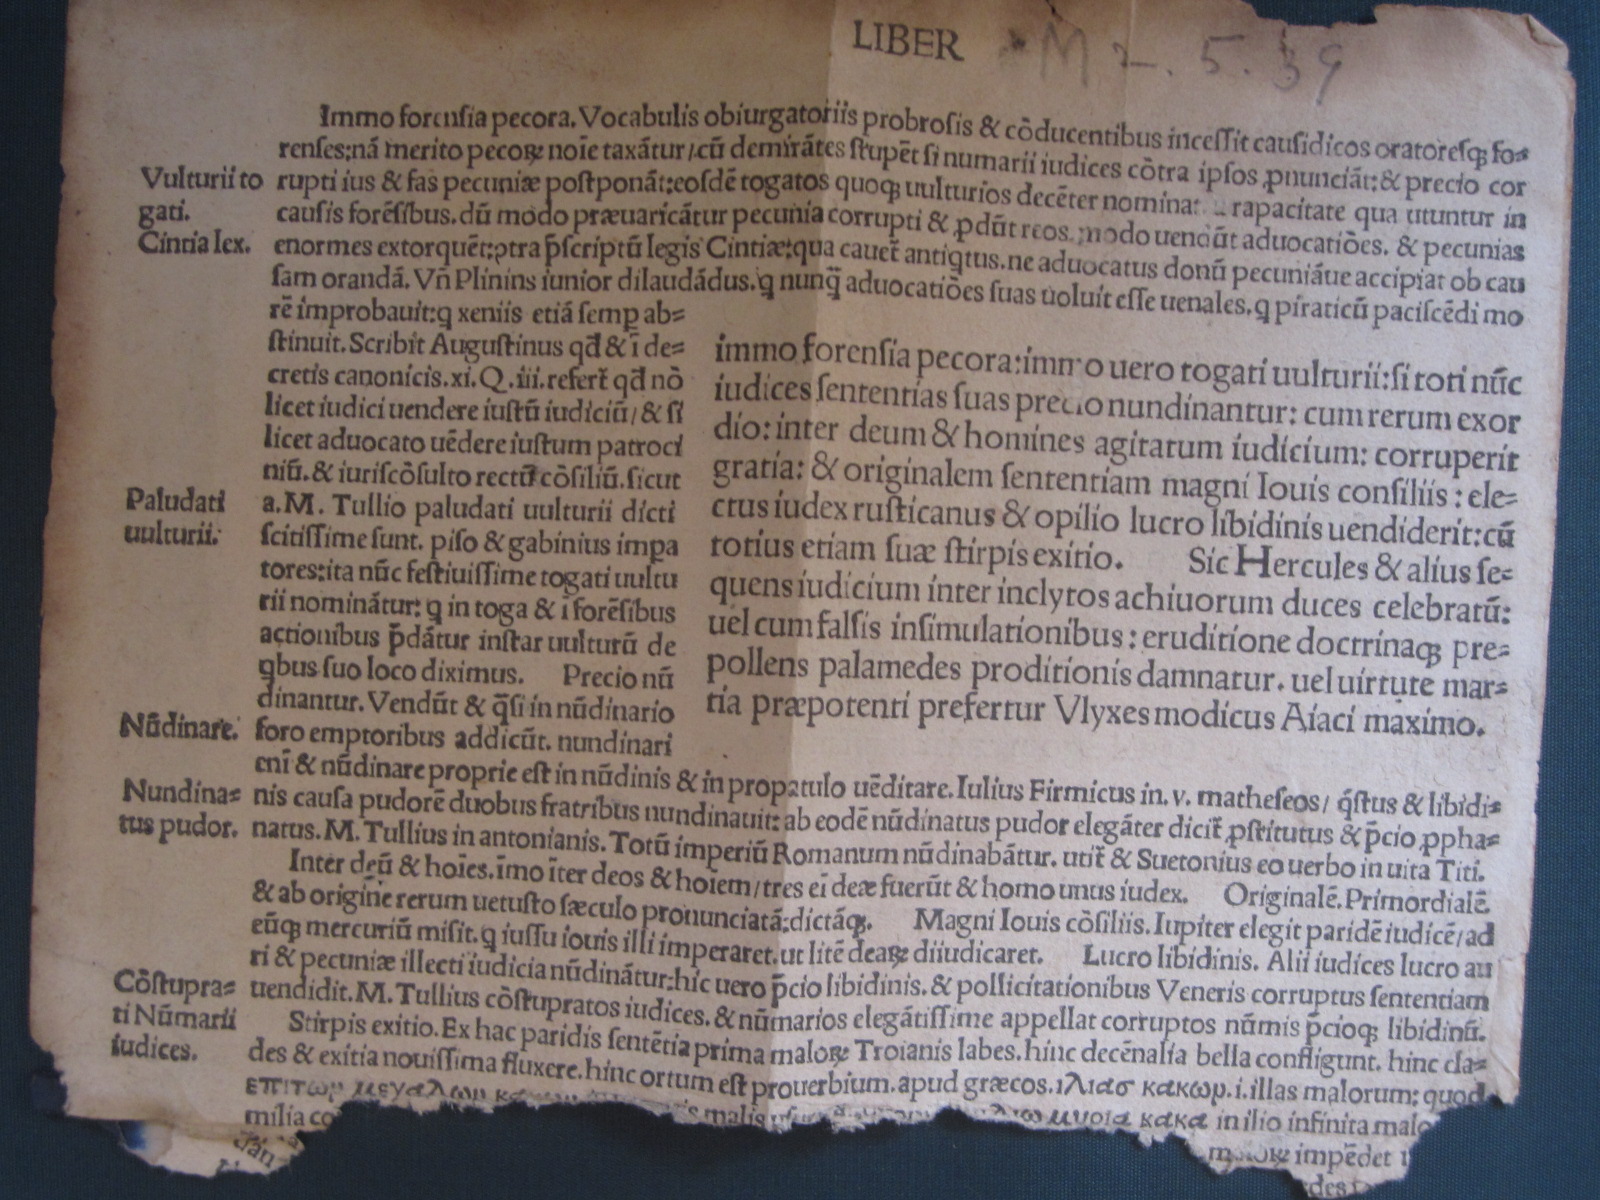 LIBER M 2. 5. 39
Immo forensia pecora. Vocabulis obiurgatoriis probrosis & cōducentibus incessit causidicos oratoresqꝫ fo=
renses: nā merito pecoꝝ noīe taxātur / cū demirātes stupēt si numarii iudices cōtra ipsos ꝓnunciāt: & precio cor
Vulturii to
gati.
rupti ius & fas pecuniæ postponāt: eosdē togatos quoqꝫ uulturios decēter nominat rapacitate qua utuntur in
causis forēsibus. dū modo præuaricātur pecunia corrupti & ꝓdūt reos. modo uendūt aduocatiōes. & pecunias
Cintia lex.
enormes extorquēt: ꝯtra p̄scriptū legis Cintiæ: qua cauet̄ antiqtus. ne aduocatus donū pecuniāue accipiat ob cau
sam orandā. Vn̄ Plinins iunior dilaudādus. q nunq̄ aduocatiōes suas uoluit esse uenales. q piraticū paciscēdi mo
rē improbauit: q xeniis etiā semp ab=
stinuit. Scribit Augustinus qd̄ & ī de=
cretis canonicis. xi. Q. iii. refert̄ qd̄ nō
licet iudici uendere iustū iudiciū / & si
licet aduocato uēdere iustum patroci
niū. & iuriscōsulto rectū cōsiliū. sicut
Paludati
uulturii.
a. M. Tullio paludati uulturii dicti
scitissime sunt. piso & gabinius impa
tores: ita nūc festiuissime togati uultu
rii nominātur: q in toga & ī forēsibus
actionibus p̄dātur instar uulturū de
qbus suo loco diximus. Precio nū
dinantur. Vendūt & q̄si in nūdinario
Nūdinare.
foro emptoribus addicūt. nundinari
immo forensia pecora: immo uero togati uulturii: si toti nūc
iudices sententias suas precio nundinantur: cum rerum exor
dio: inter deum & homines agitatum iudicium: corruperit
gratia: & originalem sententiam magni Iouis consiliis: ele=
ctus iudex rusticanus & opilio lucro libidinis uendiderit: cū
totius etiam suæ stirpis exitio. Sic Hercules & alius se=
quens iudicium inter inclytos achiuorum duces celebratū:
uel cum falsis insimulationibus: eruditione doctrinaqꝫ pre=
pollens palamedes proditionis damnatur. uel uirtute mar=
tia præpotenti prefertur Vlyxes modicus Aiaci maximo.
enī & nūdinare proprie est in nūdinis & in propatulo uēditare. Iulius Firmicus in. v. matheseos / q̄stus & libidi=
Nundina=
tus pudor.
nis causa pudorē duobus fratribus nundinauit: ab eodē nūdinatus pudor elegāter dicit̄ ꝓstitutus & p̄cio ꝓpha=
natus. M. Tullius in antonianis. Totū imperiū Romanum nūdinabātur. utit̄ & Suetonius eo uerbo in uita Titi.
Inter deū & hoīes. īmo īter deos & hoīem / tres eī deæ fuerūt & homo unus iudex. Originalē. Primordialē.
& ab origine rerum uetusto sæculo pronunciatā: dictāqꝫ. Magni Iouis cōsiliis. Iupiter elegit paridē iudicē / ad
eūqꝫ mercuriū misit. q iussu iouis illi imperaret. ut litē deaꝝ diiudicaret. Lucro libidinis. Alii iudices lucro au
ri & pecuniæ illecti iudicia nūdinātur: hic uero p̄cio libidinis. & pollicitationibus Veneris corruptus sententiam
Cōstupra=
ti Nūmarii
iudices.
uendidit. M. Tullius cōstupratos iudices. & nūmarios elegātissime appellat corruptos nūmis p̄cioqꝫ libidinū.
Stirpis exitio. Ex hac paridis sentētia prima maloꝝ Troianis labes. hinc decēnalia bella confligunt. hinc cla=
des & exitia nouissima fluxere. hinc ortum est prouerbium. apud græcos. ιλιασ κακωρ. i. illas malorum: quod
επιτωρ μεγαλωρ malis μυρια κακα in ilio infinita malo
milia co
maloꝝ impēdet